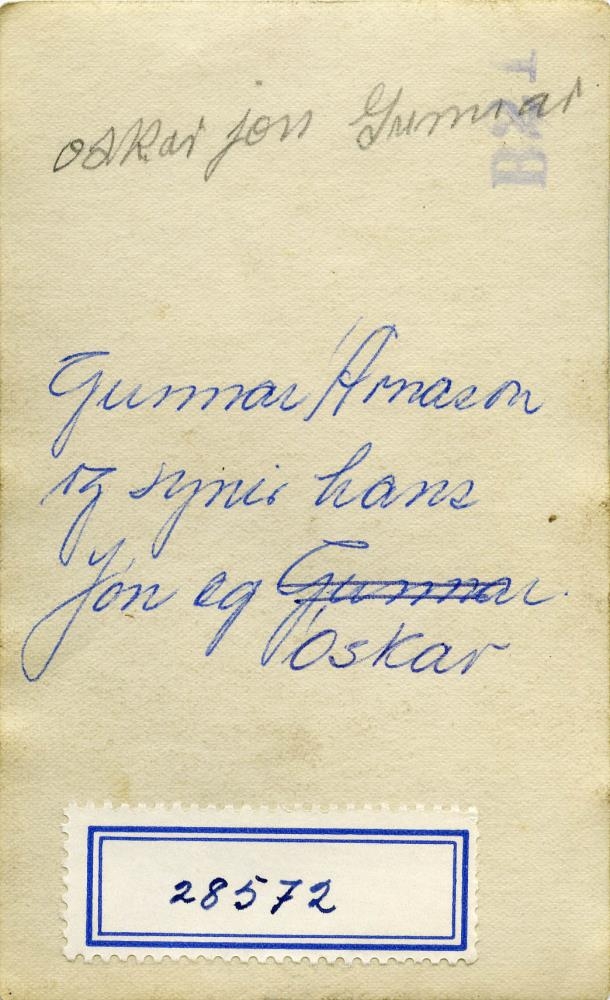 oskar jón Gunnar
B221
Gunnar Árnason
og synir hans
Jón og Gunnar.
Óskar
28572